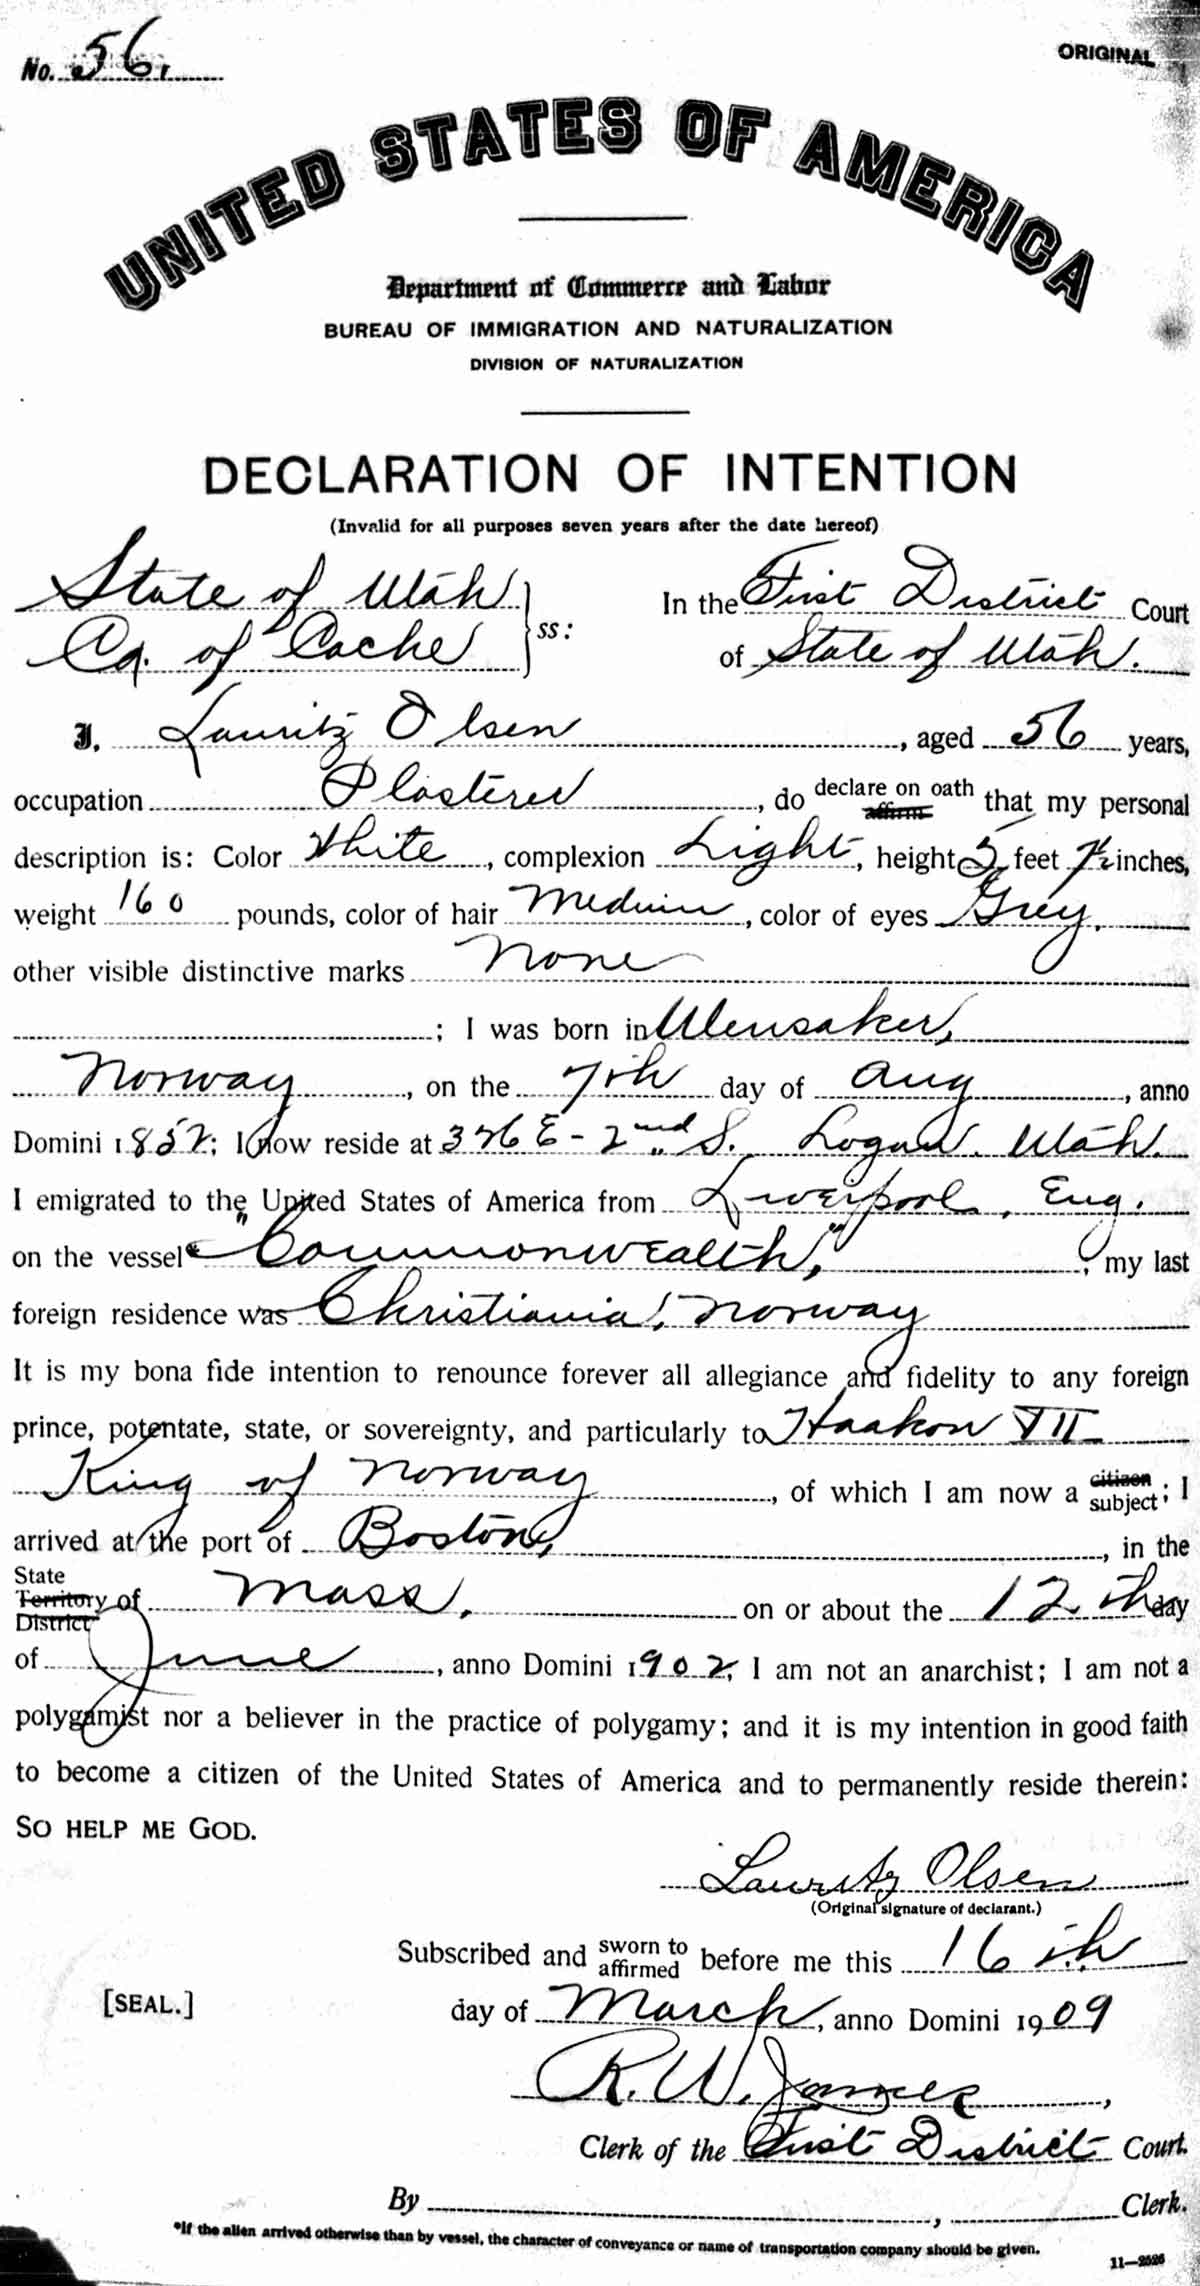 No. 56
ORIGINAL
UNITED STATES OF AMERICA
Department of Commerce and Labor
BUREAU OF IMMIGRATION AND NATURALIZATION
DIVISION OF NATURALIZATION
DECLARATION OF INTENTION
(Invalid for all purposes seven years after the date hereof)
State of Utah
Co. of Cache
ss:
In the First District Court
of State of Utah.
I, Lauritz Olsen, aged 56 years,
occupation Plasterer, do declare on oath affirm that my personal
description is: Color White, complexion Light, height 5 feet 7½ inches,
weight 160 pounds, color of hair Medium, color of eyes Grey,
other visible distinctive marks None
; I was born in Ulensaker,
Norway, on the 7th day of Aug, anno
Domini 1852; I now reside at 376 E - 2nd S. Logan. Utah.
I emigrated to the United States of America from Liverpool, Eng.
on the vessel* "Commonwealth," ; my last
foreign residence was Christiania, Norway
It is my bona fide intention to renounce forever all allegiance and fidelity to any foreign
prince, potentate, state, or sovereignty, and particularly to Haakon VII
King of Norway, of which I am now a citizen subject; I
arrived at the port of Boston, in the
State
Territory of Mass. on or about the 12th day
District
of June, anno Domini 1902; I am not an anarchist; I am not a
polygamist nor a believer in the practice of polygamy; and it is my intention in good faith
to become a citizen of the United States of America and to permanently reside therein:
SO HELP ME GOD.
Lauritz Olsen
(Original signature of declarant.)
Subscribed and sworn to affirmed before me this 16th
[SEAL.]
day of March, anno Domini 1909
R. W. James,
Clerk of the First District Court.
By , Clerk.
*If the alien arrived otherwise than by vessel, the character of conveyance or name of transportation company should be given.
11—2626